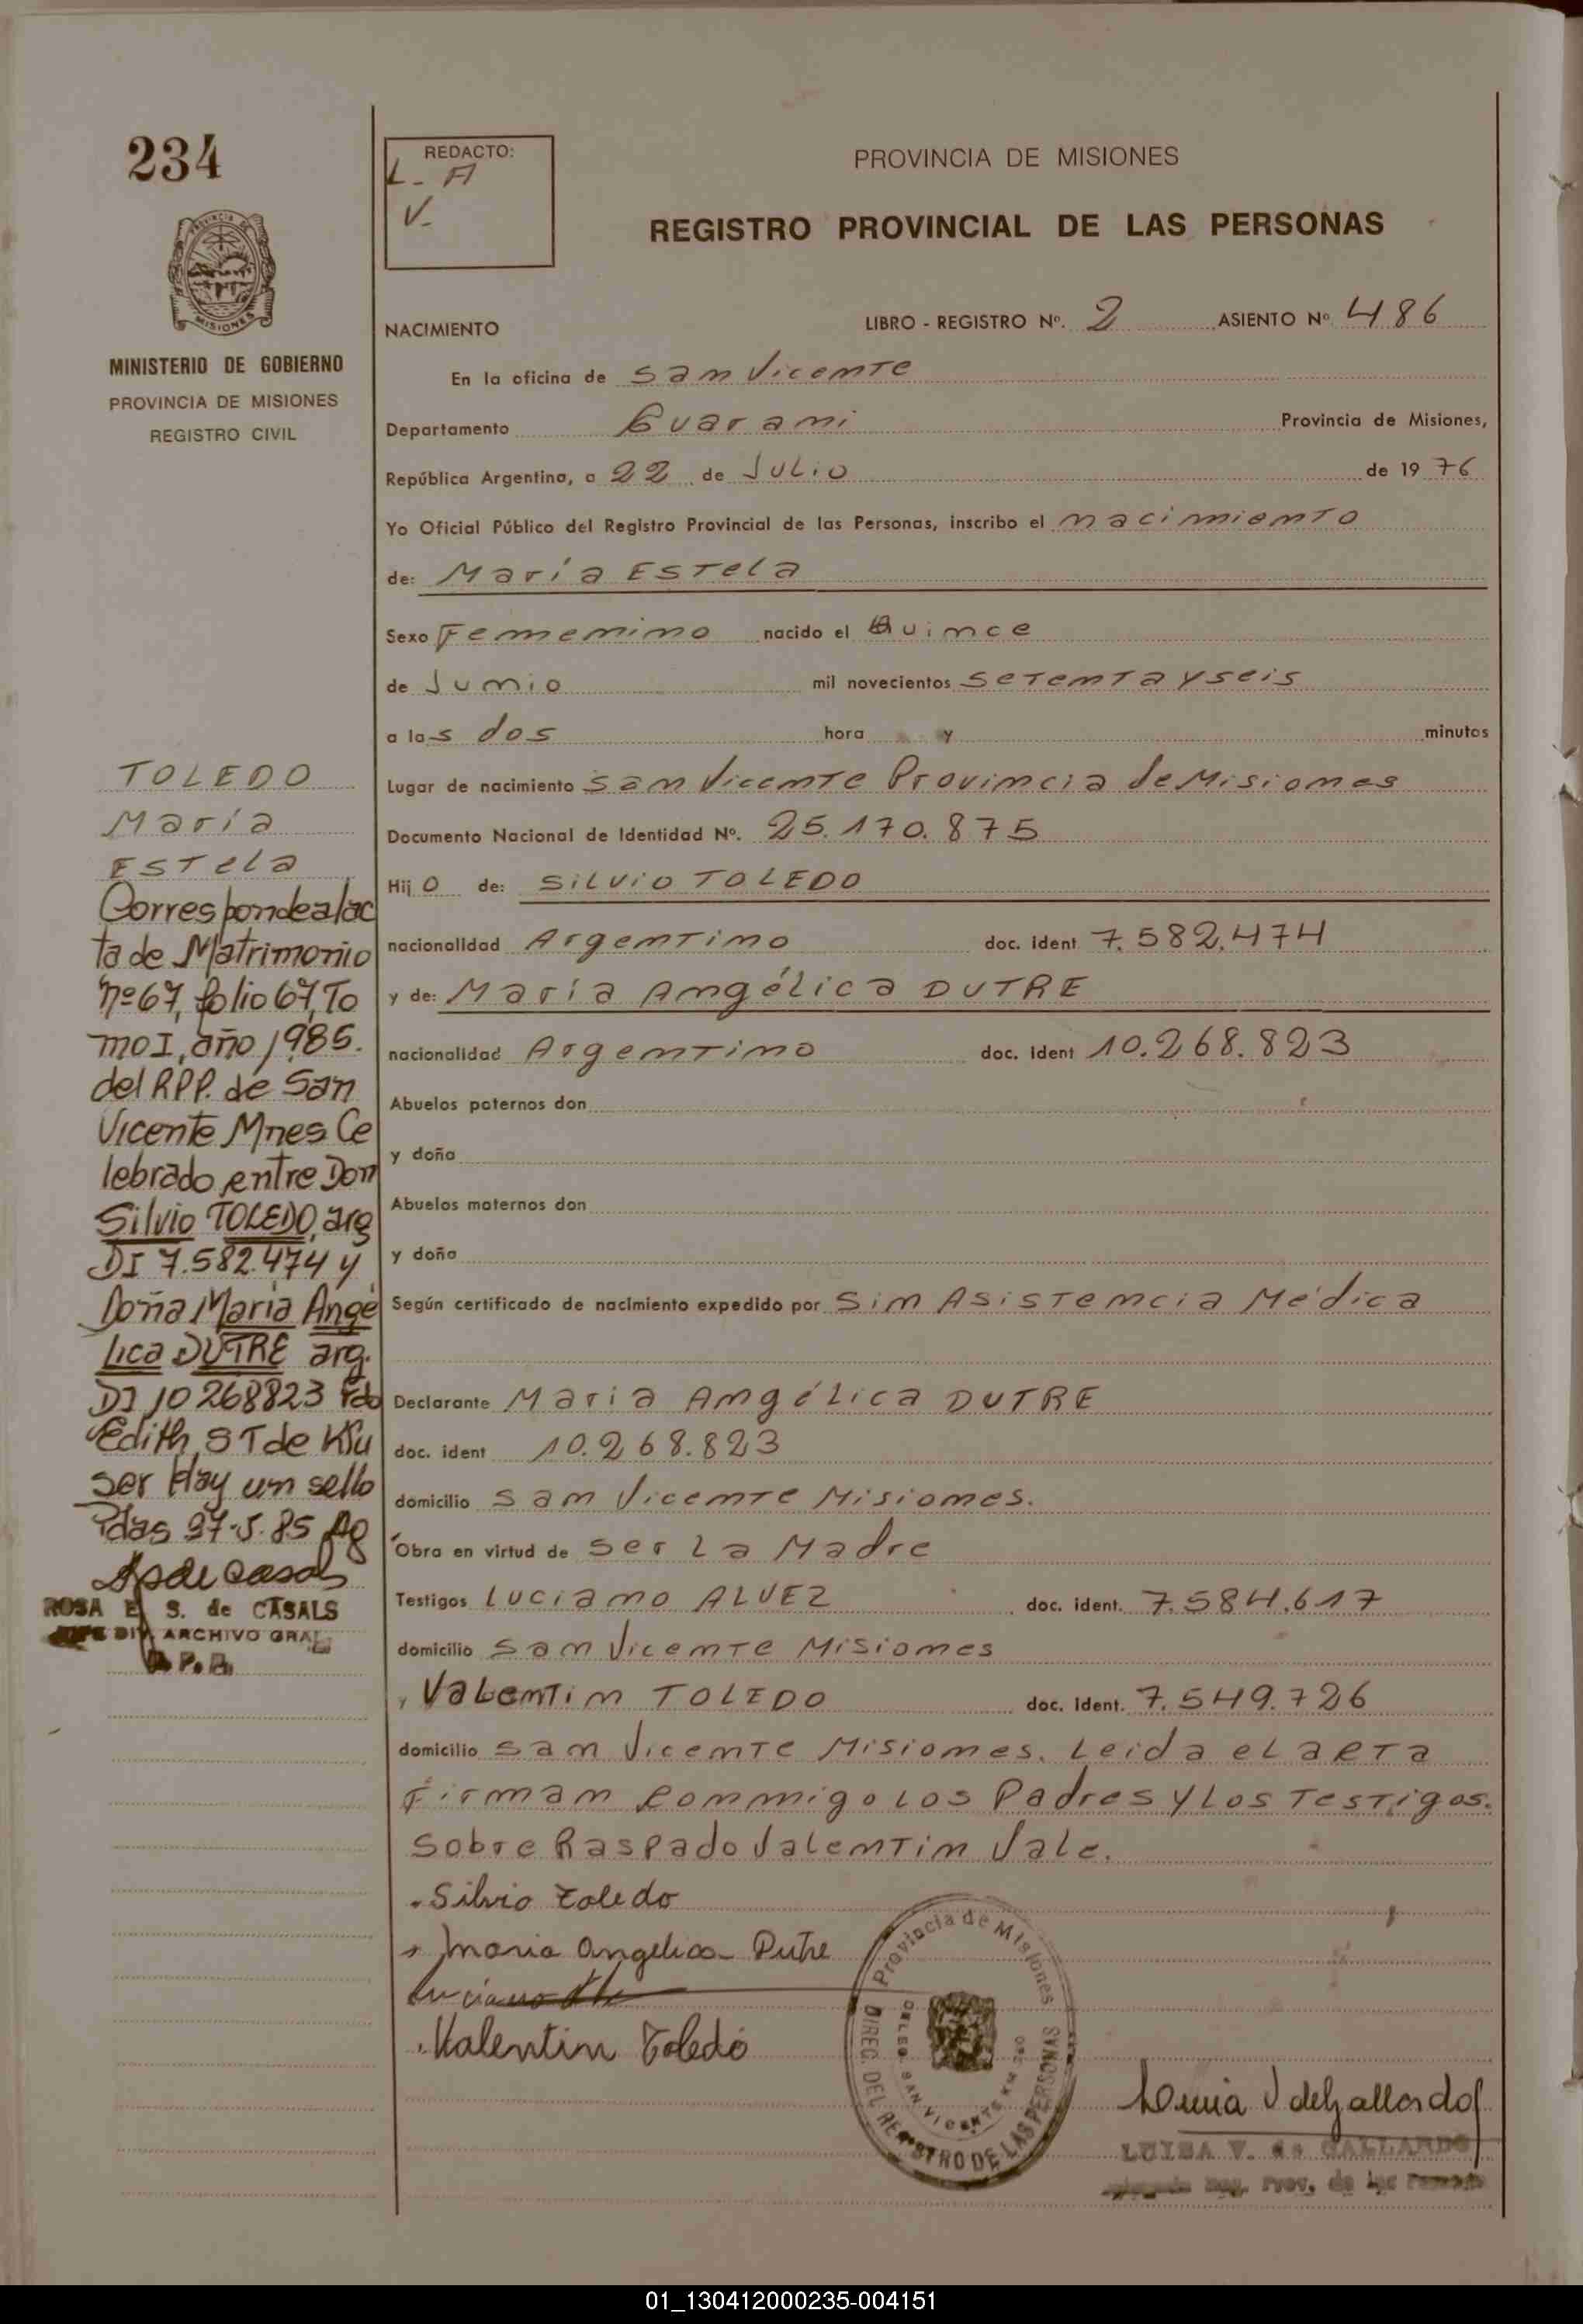 234
REDACTO:
L. A
V.
PROVINCIA DE MISIONES
REGISTRO PROVINCIAL DE LAS PERSONAS
MISIONES
MINISTERIO DE GOBIERNO
PROVINCIA DE MISIONES
REGISTRO CIVIL
NACIMIENTO LIBRO - REGISTRO Nº. 2 ASIENTO Nº 486
En la oficina de San Vicente
Departamento Guarani Provincia de Misiones,
República Argentina, a 22 de Julio de 1976
Yo Oficial Público del Registro Provincial de las Personas, inscribo el nacimiento
de: María Estela
Sexo Femenino nacido el Quince
de Junio mil novecientos setenta y seis
a las dos hora y minutos
Lugar de nacimiento San Vicente Provincia de Misiones
Documento Nacional de Identidad Nº. 25.170.875
Hijo de: SILVIO TOLEDO
nacionalidad Argentino doc. ident 7.582.474
y de: María Angélica DUTRE
nacionalidad Argentino doc. ident 10.268.823
Abuelos paternos don
y doña
Abuelos maternos don
y doña
Según certificado de nacimiento expedido por Sin Asistencia Médica
Declarante Maria Angélica DUTRE
doc. ident 10.268.823
domicilio San Vicente Misiones.
Obra en virtud de ser La Madre
Testigos Luciano ALVEZ doc. ident. 7.584.617
domicilio San Vicente Misiones
y Valentin TOLEDO doc. ident. 7.549.726
domicilio San Vicente Misiones. Leida el acta
Firman conmigo los Padres y los Testigos.
Sobre Raspado Valentin Vale.
Silvio Toledo
Maria Angelica Dutre
Luciano
Valentin Toledo
TOLEDO
María
Estela
Corresponde al ac
ta de Matrimonio
nº 67, folio 67, To
mo I, año 1985.
del RPP. de San
Vicente Mnes Ce
lebrado entre Don
Silvio TOLEDO, arg
DI 7.582.474 y
Doña Maria Angé
lica DUTRE arg.
DI 10268823 Fdo
Edith S T de Kru
ser Hay un sello
Pdas 27-5-85
ROSA E. S. de CASALS
JEFE DIV. ARCHIVO GRAL.
R. P. P.
Provincia de Misiones
DIREC. DEL REGISTRO DE LAS PERSONAS
DELEG. SAN VICENTE KM
LUISA V. de GALLARDO
Reg. Prov. de las
01_130412000235-004151